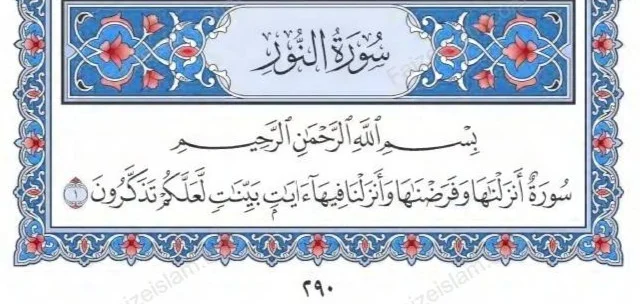 سُورَةُ النُّورِ
بِسْمِ اللَّهِ الرَّحْمَٰنِ الرَّحِيمِ
سُورَةٌ أَنزَلْنَٰهَا وَفَرَضْنَٰهَا وَأَنزَلْنَا فِيهَآ ءَايَٰتٍۭ بَيِّنَٰتٍ لَّعَلَّكُمْ تَذَكَّرُونَ ١
٢٩٠